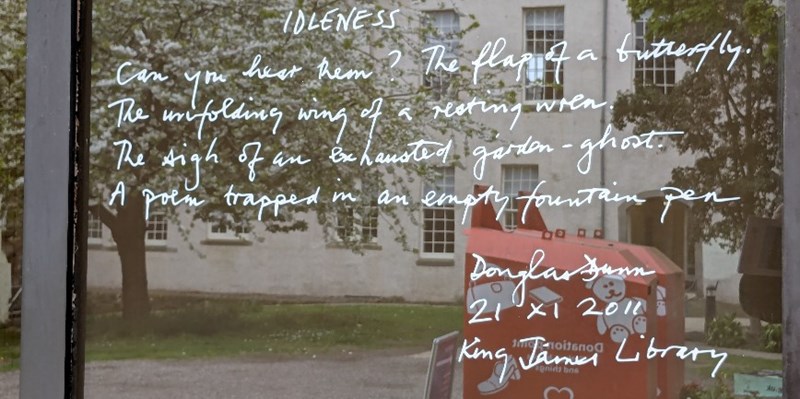 IDLENESS
Can you hear them? The flap of a butterfly.
The unfolding wing of a resting wren.
The sigh of an exhausted garden-ghost.
A poem trapped in an empty fountain pen
Douglas Dunn
21 XI 2011
King James Library
Donation point
and things